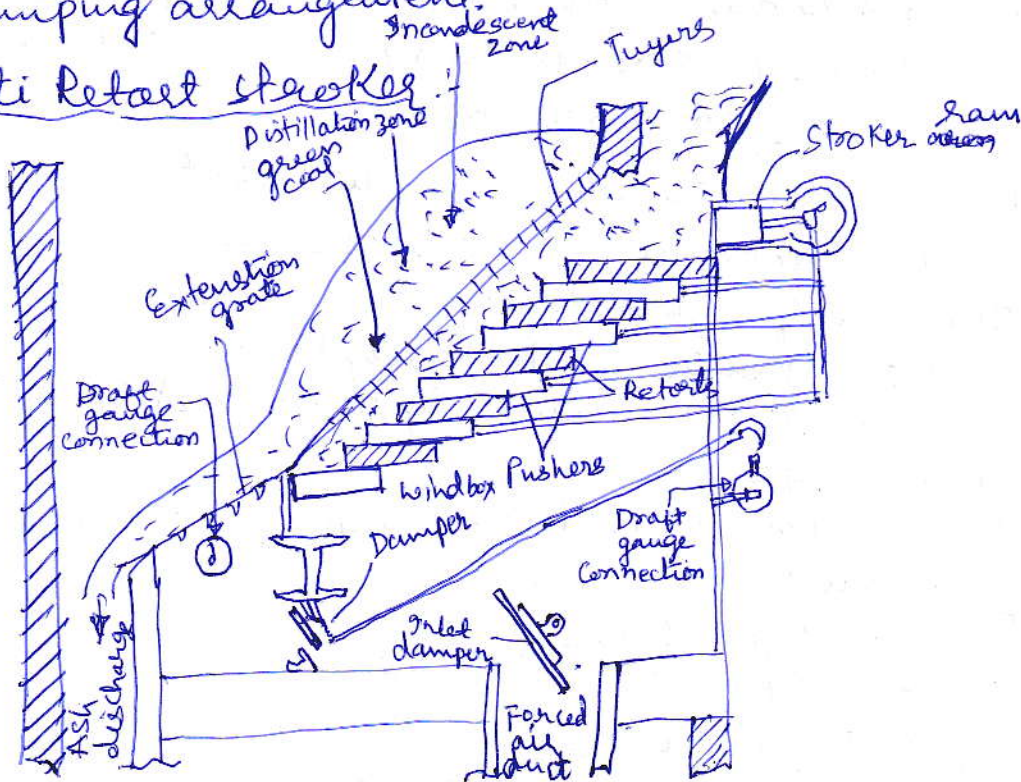 umping arrangement.
ti Retort stroker :-
Incandescent
zone
Tuyers
Distillation zone
green
coal
Stroker ram
Extenstion
grate
Draft
gauge
connection
Retorts
Pushers
windbox
Damper
Draft
gauge
Connection
Inlet
damper
Ash
discharge
Forced
air
duct